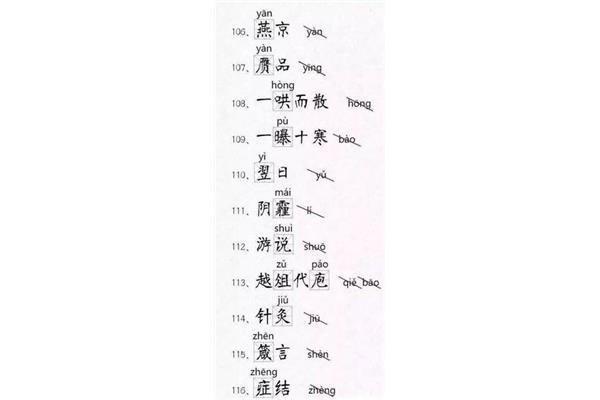 yān
106、燕京 yàn
yàn
107、赝品 yīng
hòng
108、一哄而散 hōng
pù
109、一曝十寒 bào
yì
110、翌日 yǔ
mái
111、阴霾 lí
shuì
112、游说 shuō
zǔ páo
113、越俎代庖 qiě bāo
jiǔ
114、针灸 jiù
zhēn
115、箴言 shèn
zhēng
116、症结 zhèng